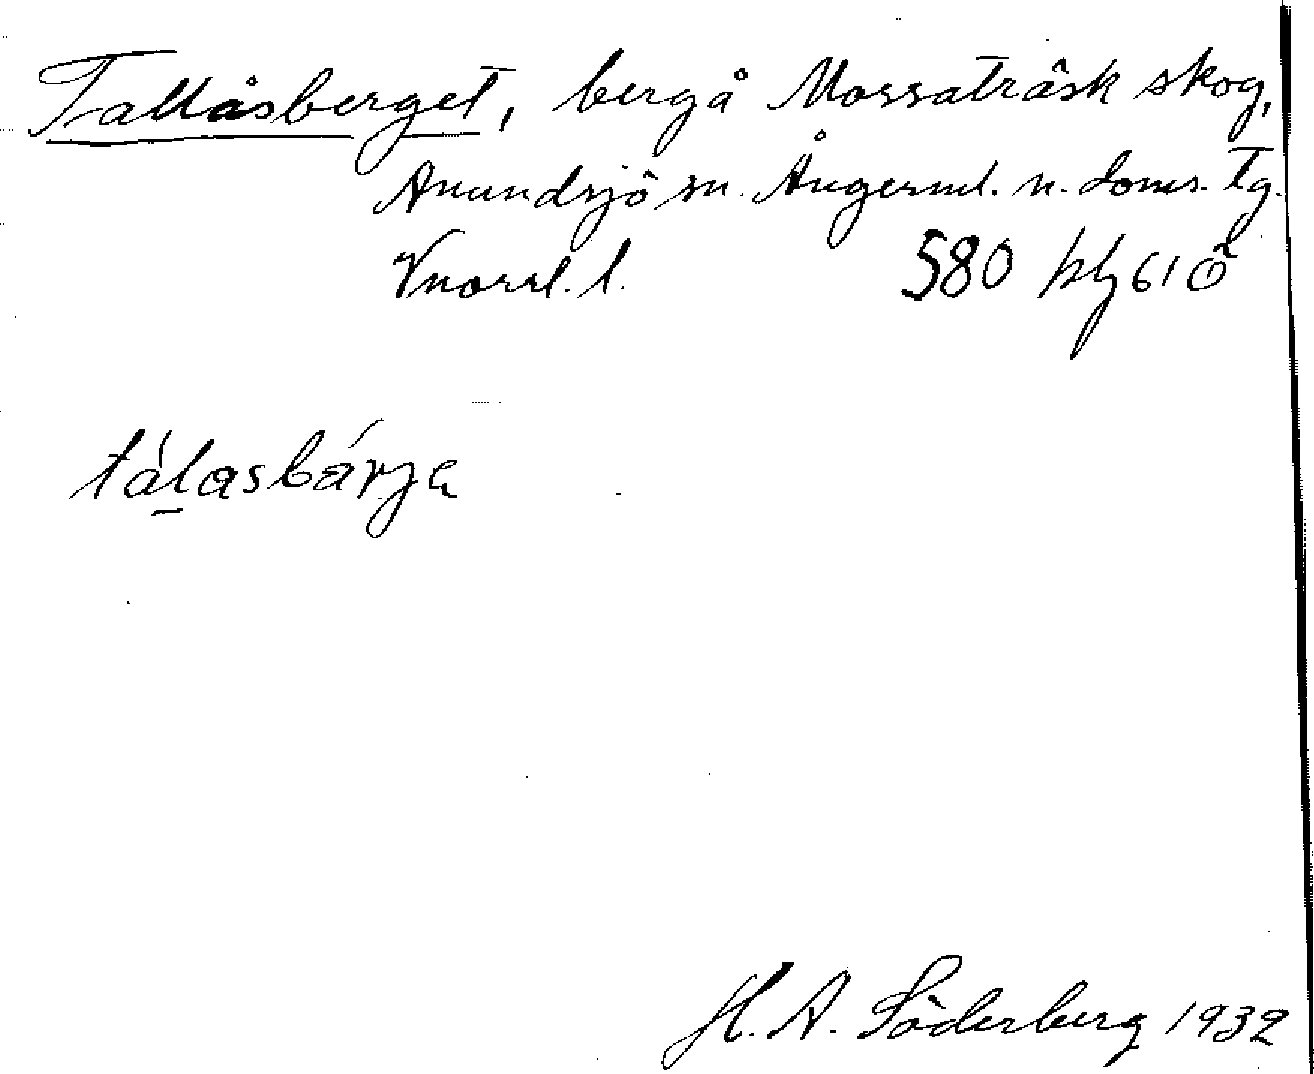 Tallåsberget, berg å Mossaträsk skog,
Anundsjö sn. Ångerml. n. doms. Tg.
Vnorrl. l. 580 hbl 61 Ö
tálasbárja
H. A. Söderberg 1932